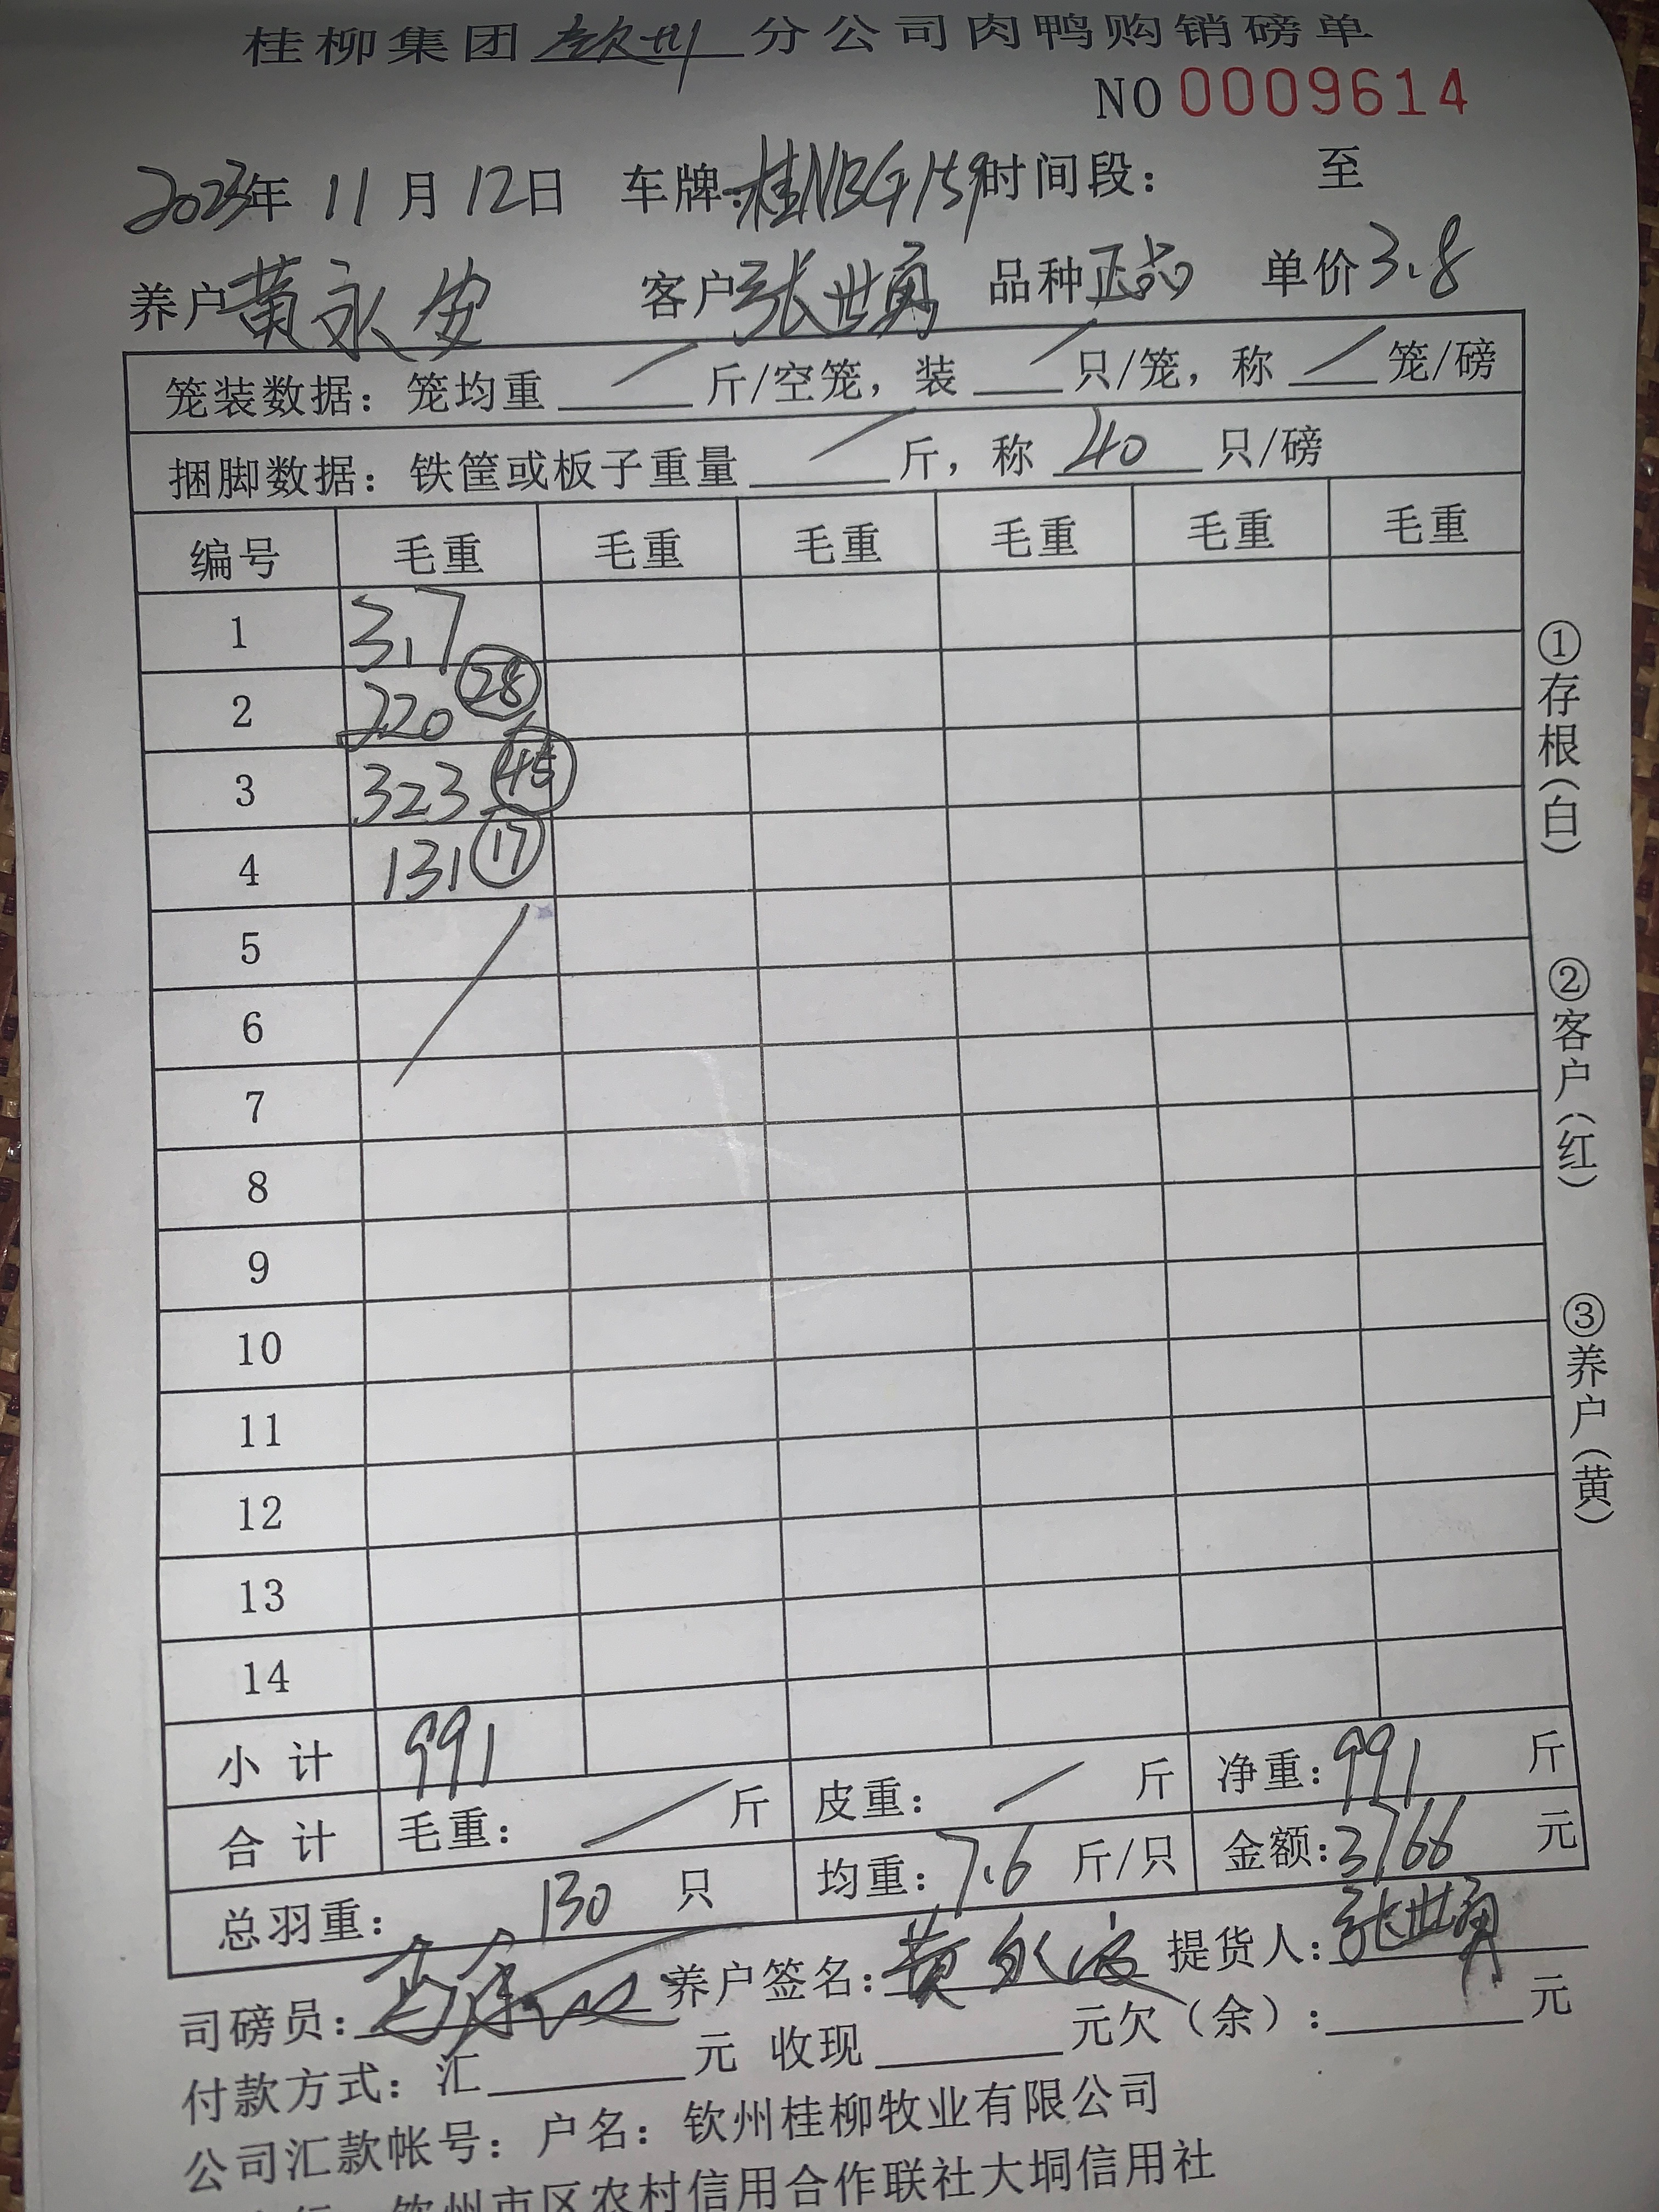 桂柳集团钦州分公司肉鸭购销磅单
NO 0009614
2023年 11月 12日 车牌:桂NBG159 时间段: 至
养户黄永安 客户张世勇 品种正品 单价3.8
笼装数据: 笼均重 / 斤/空笼, 装 / 只/笼, 称 / 笼/磅
捆脚数据: 铁筐或板子重量 / 斤, 称 40 只/磅
编号 毛重 毛重 毛重 毛重 毛重 毛重
1 317
2 220 28
3 323 45
4 131 17
5
6
7
8
9
10
11
12
13
14
小计 991
合计 毛重: / 斤 皮重: / 斤 净重:991 斤
总羽重: 130 只 均重:7.6 斤/只 金额:3766 元
司磅员: 养户签名:黄永安 提货人:张世勇
付款方式: 汇 元 收现 元欠(余): 元
公司汇款帐号: 户名: 钦州桂柳牧业有限公司
钦州市区农村信用合作联社大垌信用社
①存根(白)
②客户(红)
③养户(黄)